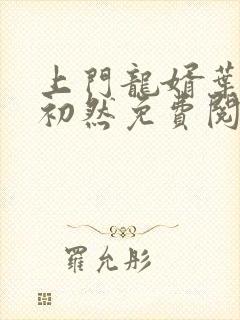 上門龍婿葉
初然免費閱
羅允彤